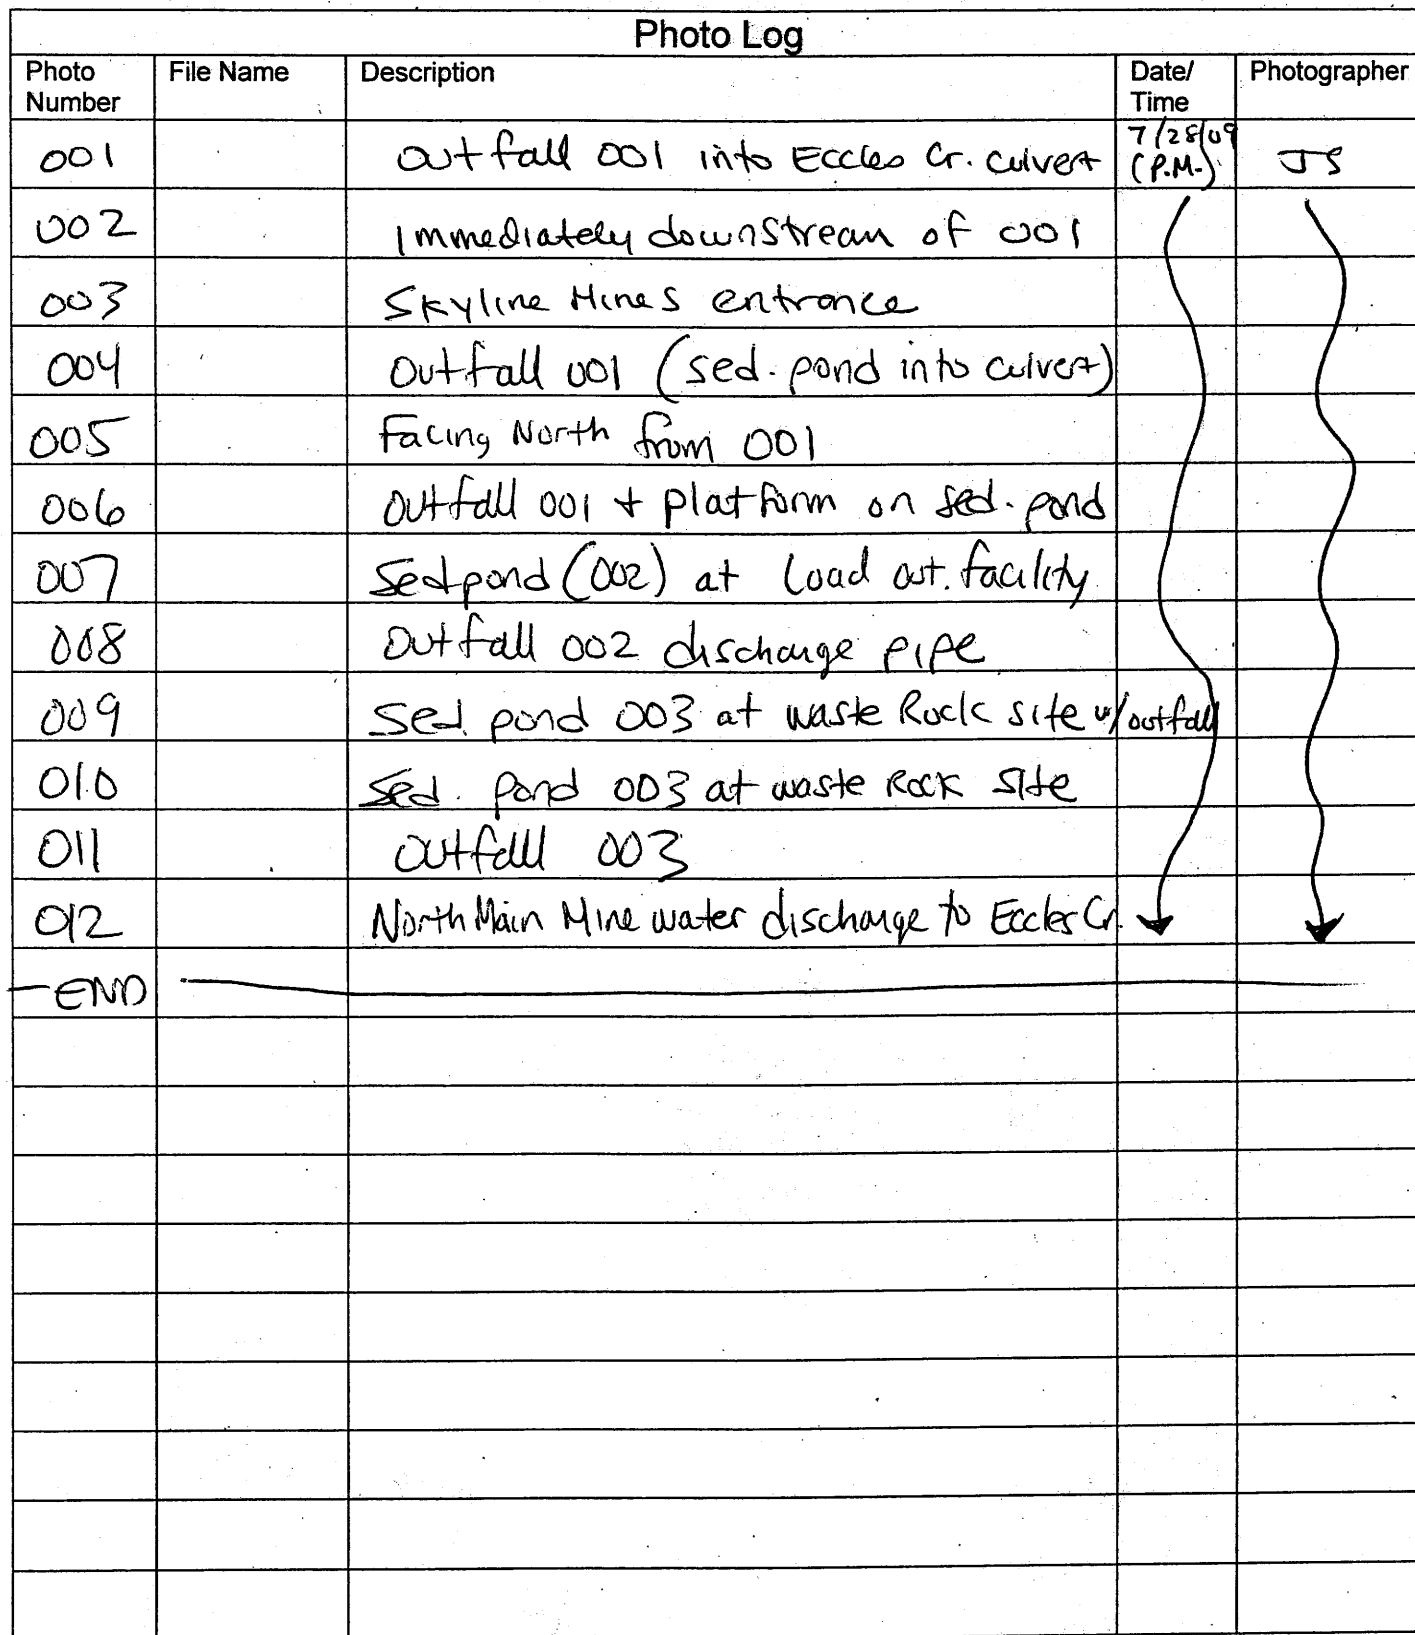 Photo Log
Photo Number File Name Description Date/ Time Photographer
001 Outfall 001 into Eccles Cr. culvert 7/28/09 (P.M.) JS
002 Immediately downstream of 001
003 Skyline Mines entrance
004 Outfall 001 (sed. pond into culvert)
005 Facing North from 001
006 Outfall 001 + platform on sed. pond
007 Sed pond (002) at Load out. facility
008 Outfall 002 discharge pipe
009 Sed. pond 003 at waste Rock site w/outfall
010 Sed. Pond 003 at waste Rock Site
011 Outfall 003
012 North Main Mine water discharge to Eccles Cr.
END